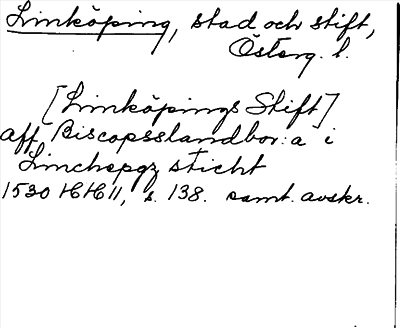 Linköping, stad och stift,
Österg. l.
[Linköpings Stift]
aff Biscopsslandbor:a i
Linchepgz sticht
1530 HH 11, s. 138. samt. avskr.